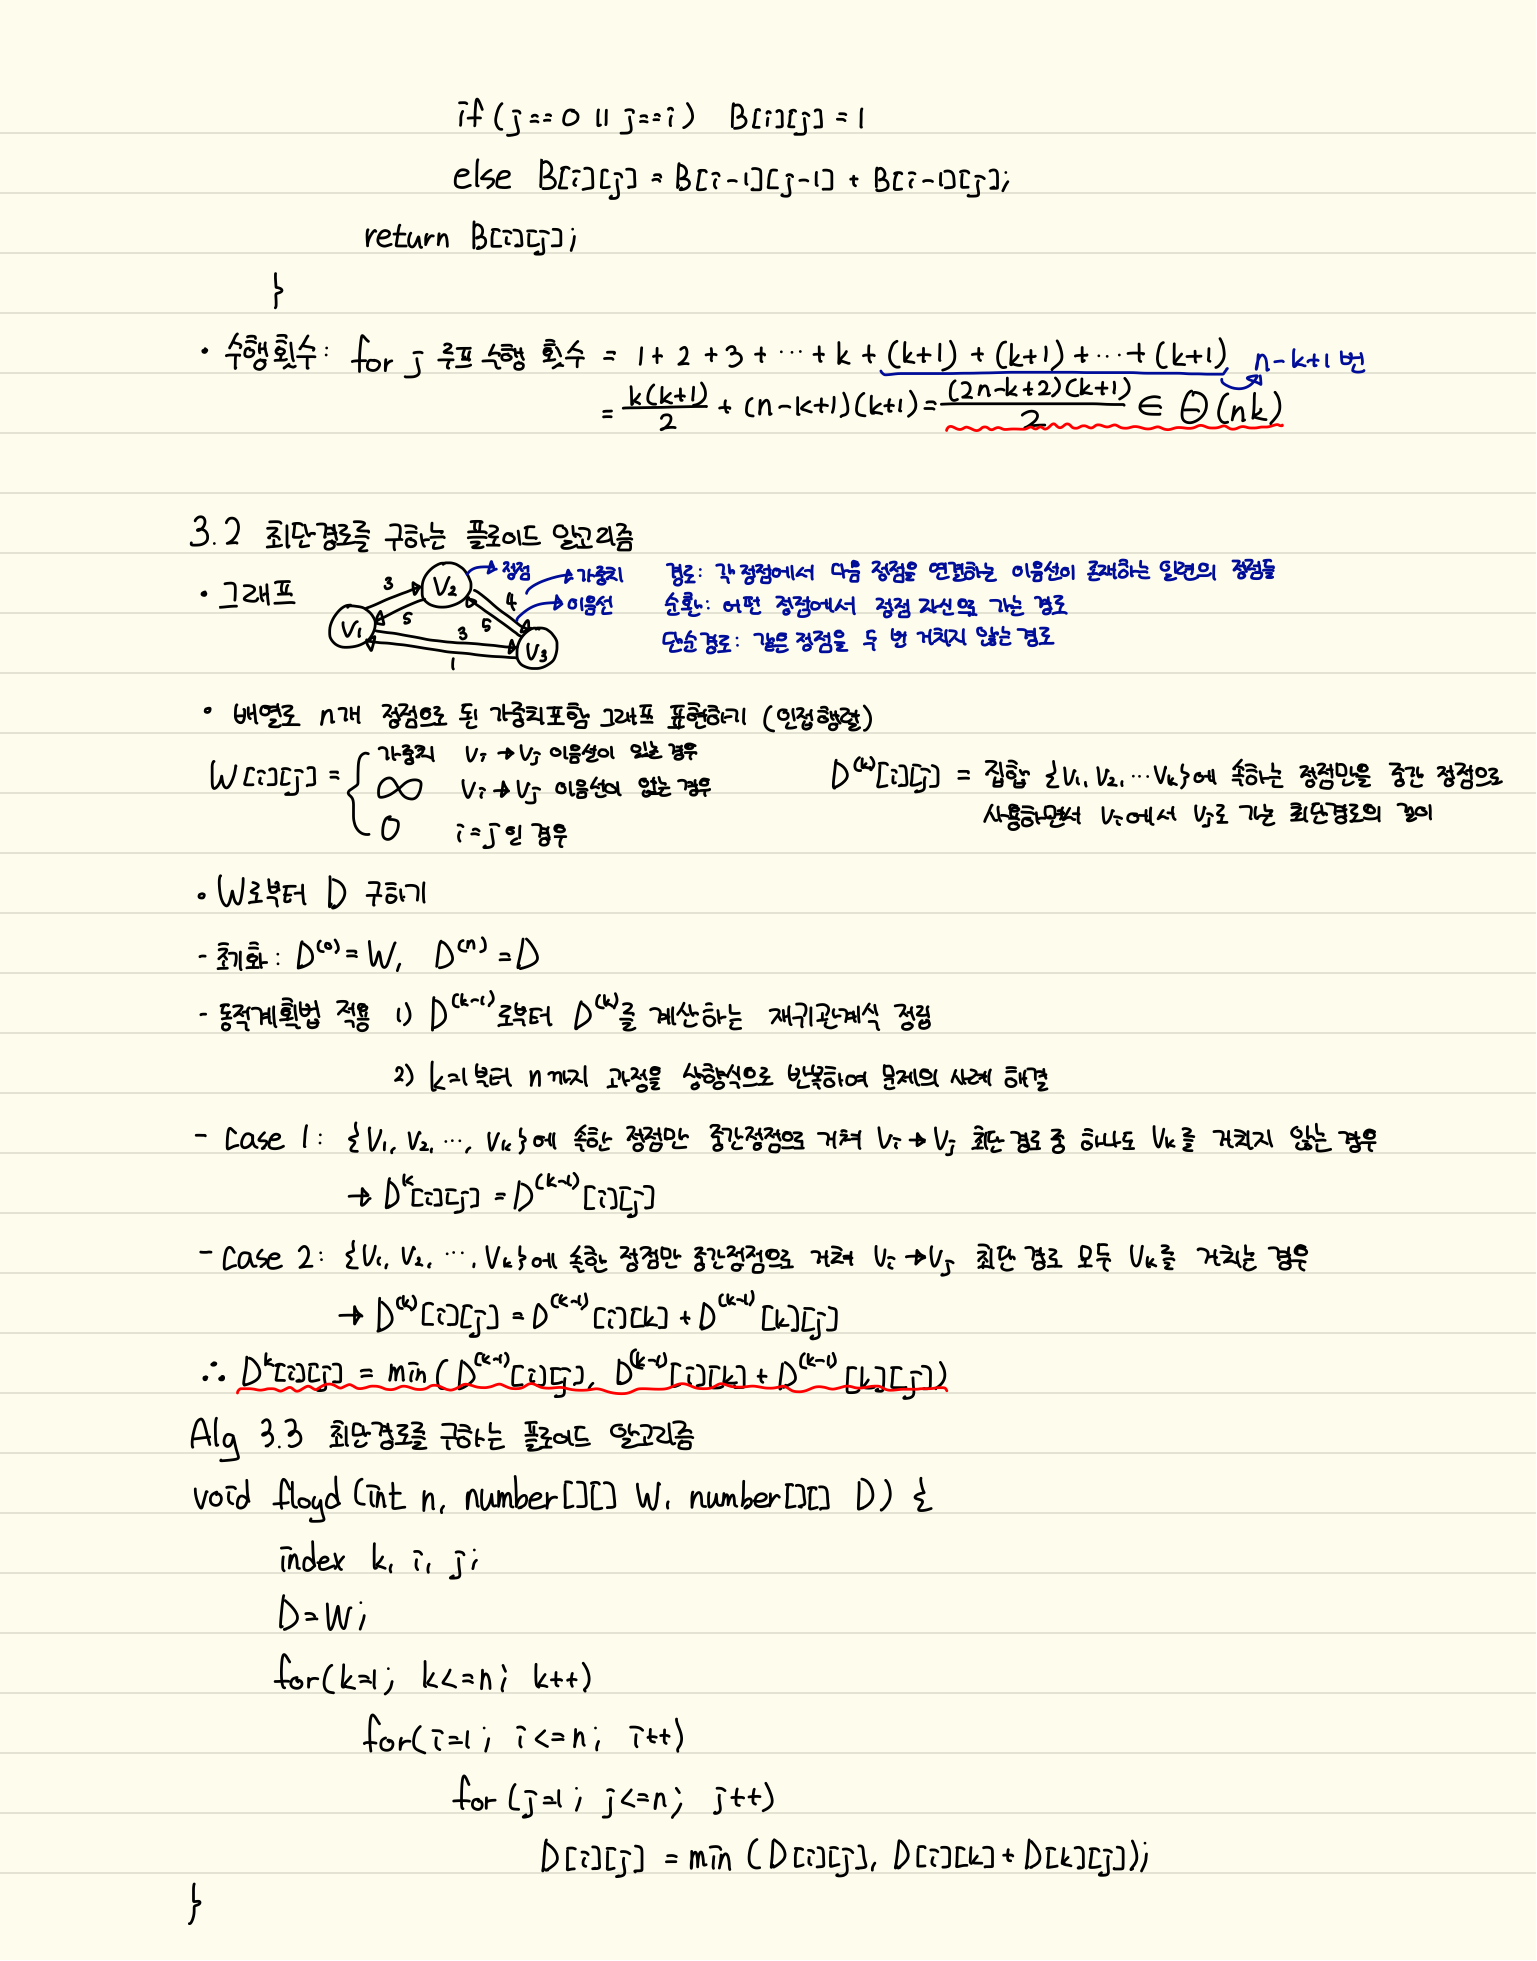 if (j==0 || j==i) B[i][j] = 1
else B[i][j] = B[i-1][j-1] + B[i-1][j];
return B[i][j];
}
• 수행횟수: for j 루프 수행 횟수 = 1+2+3+⋯+k+(k+1)+(k+1)+⋯+(k+1) n-k+1 번
= k(k+1)/2 + (n-k+1)(k+1) = (2n-k+2)(k+1)/2 ∈ Θ(nk)
3.2 최단경로를 구하는 플로이드 알고리즘
• 그래프
V1 V2 V3 3 5 4 5 3 1
정점
가중치
이음선
경로: 각 정점에서 다음 정점을 연결하는 이음선이 존재하는 일련의 정점들
순환: 어떤 정점에서 정점 자신으로 가는 경로
단순경로: 같은 정점을 두 번 거치지 않는 경로
• 배열로 n개 정점으로 된 가중치포함 그래프 표현하기 (인접행렬)
W[i][j] = { 가중치 Vi → Vj 이음선이 있는 경우
∞ Vi → Vj 이음선이 없는 경우
0 i=j인 경우
D^(k)[i][j] = 집합 {V1, V2, ⋯Vk}에 속하는 정점만을 중간 정점으로
사용하면서 Vi에서 Vj로 가는 최단경로의 길이
• W로부터 D 구하기
- 초기화: D^(0)=W, D^(n)=D
- 동적계획법 적용 1) D^(k-1)로부터 D^(k)를 계산하는 재귀관계식 정립
2) k=1부터 n까지 과정을 상향식으로 반복하여 문제의 사례 해결
- Case 1: {V1, V2, ⋯, Vk}에 속한 정점만 중간정점으로 거쳐 Vi → Vj 최단 경로 중 하나도 Vk를 거치지 않는 경우
→ D^k[i][j] = D^(k-1)[i][j]
- Case 2: {V1, V2, ⋯, Vk}에 속한 정점만 중간정점으로 거쳐 Vi → Vj 최단 경로 모두 Vk를 거치는 경우
→ D^(k)[i][j] = D^(k-1)[i][k] + D^(k-1)[k][j]
∴ D^k[i][j] = min(D^(k-1)[i][j], D^(k-1)[i][k] + D^(k-1)[k][j])
Alg 3.3 최단경로를 구하는 플로이드 알고리즘
void floyd (int n, number[][] W, number[][] D) {
index k, i, j;
D=W;
for(k=1; k<=n; k++)
for(i=1; i<=n; i++)
for (j=1; j<=n; j++)
D[i][j] = min (D[i][j], D[i][k]+D[k][j]);
}